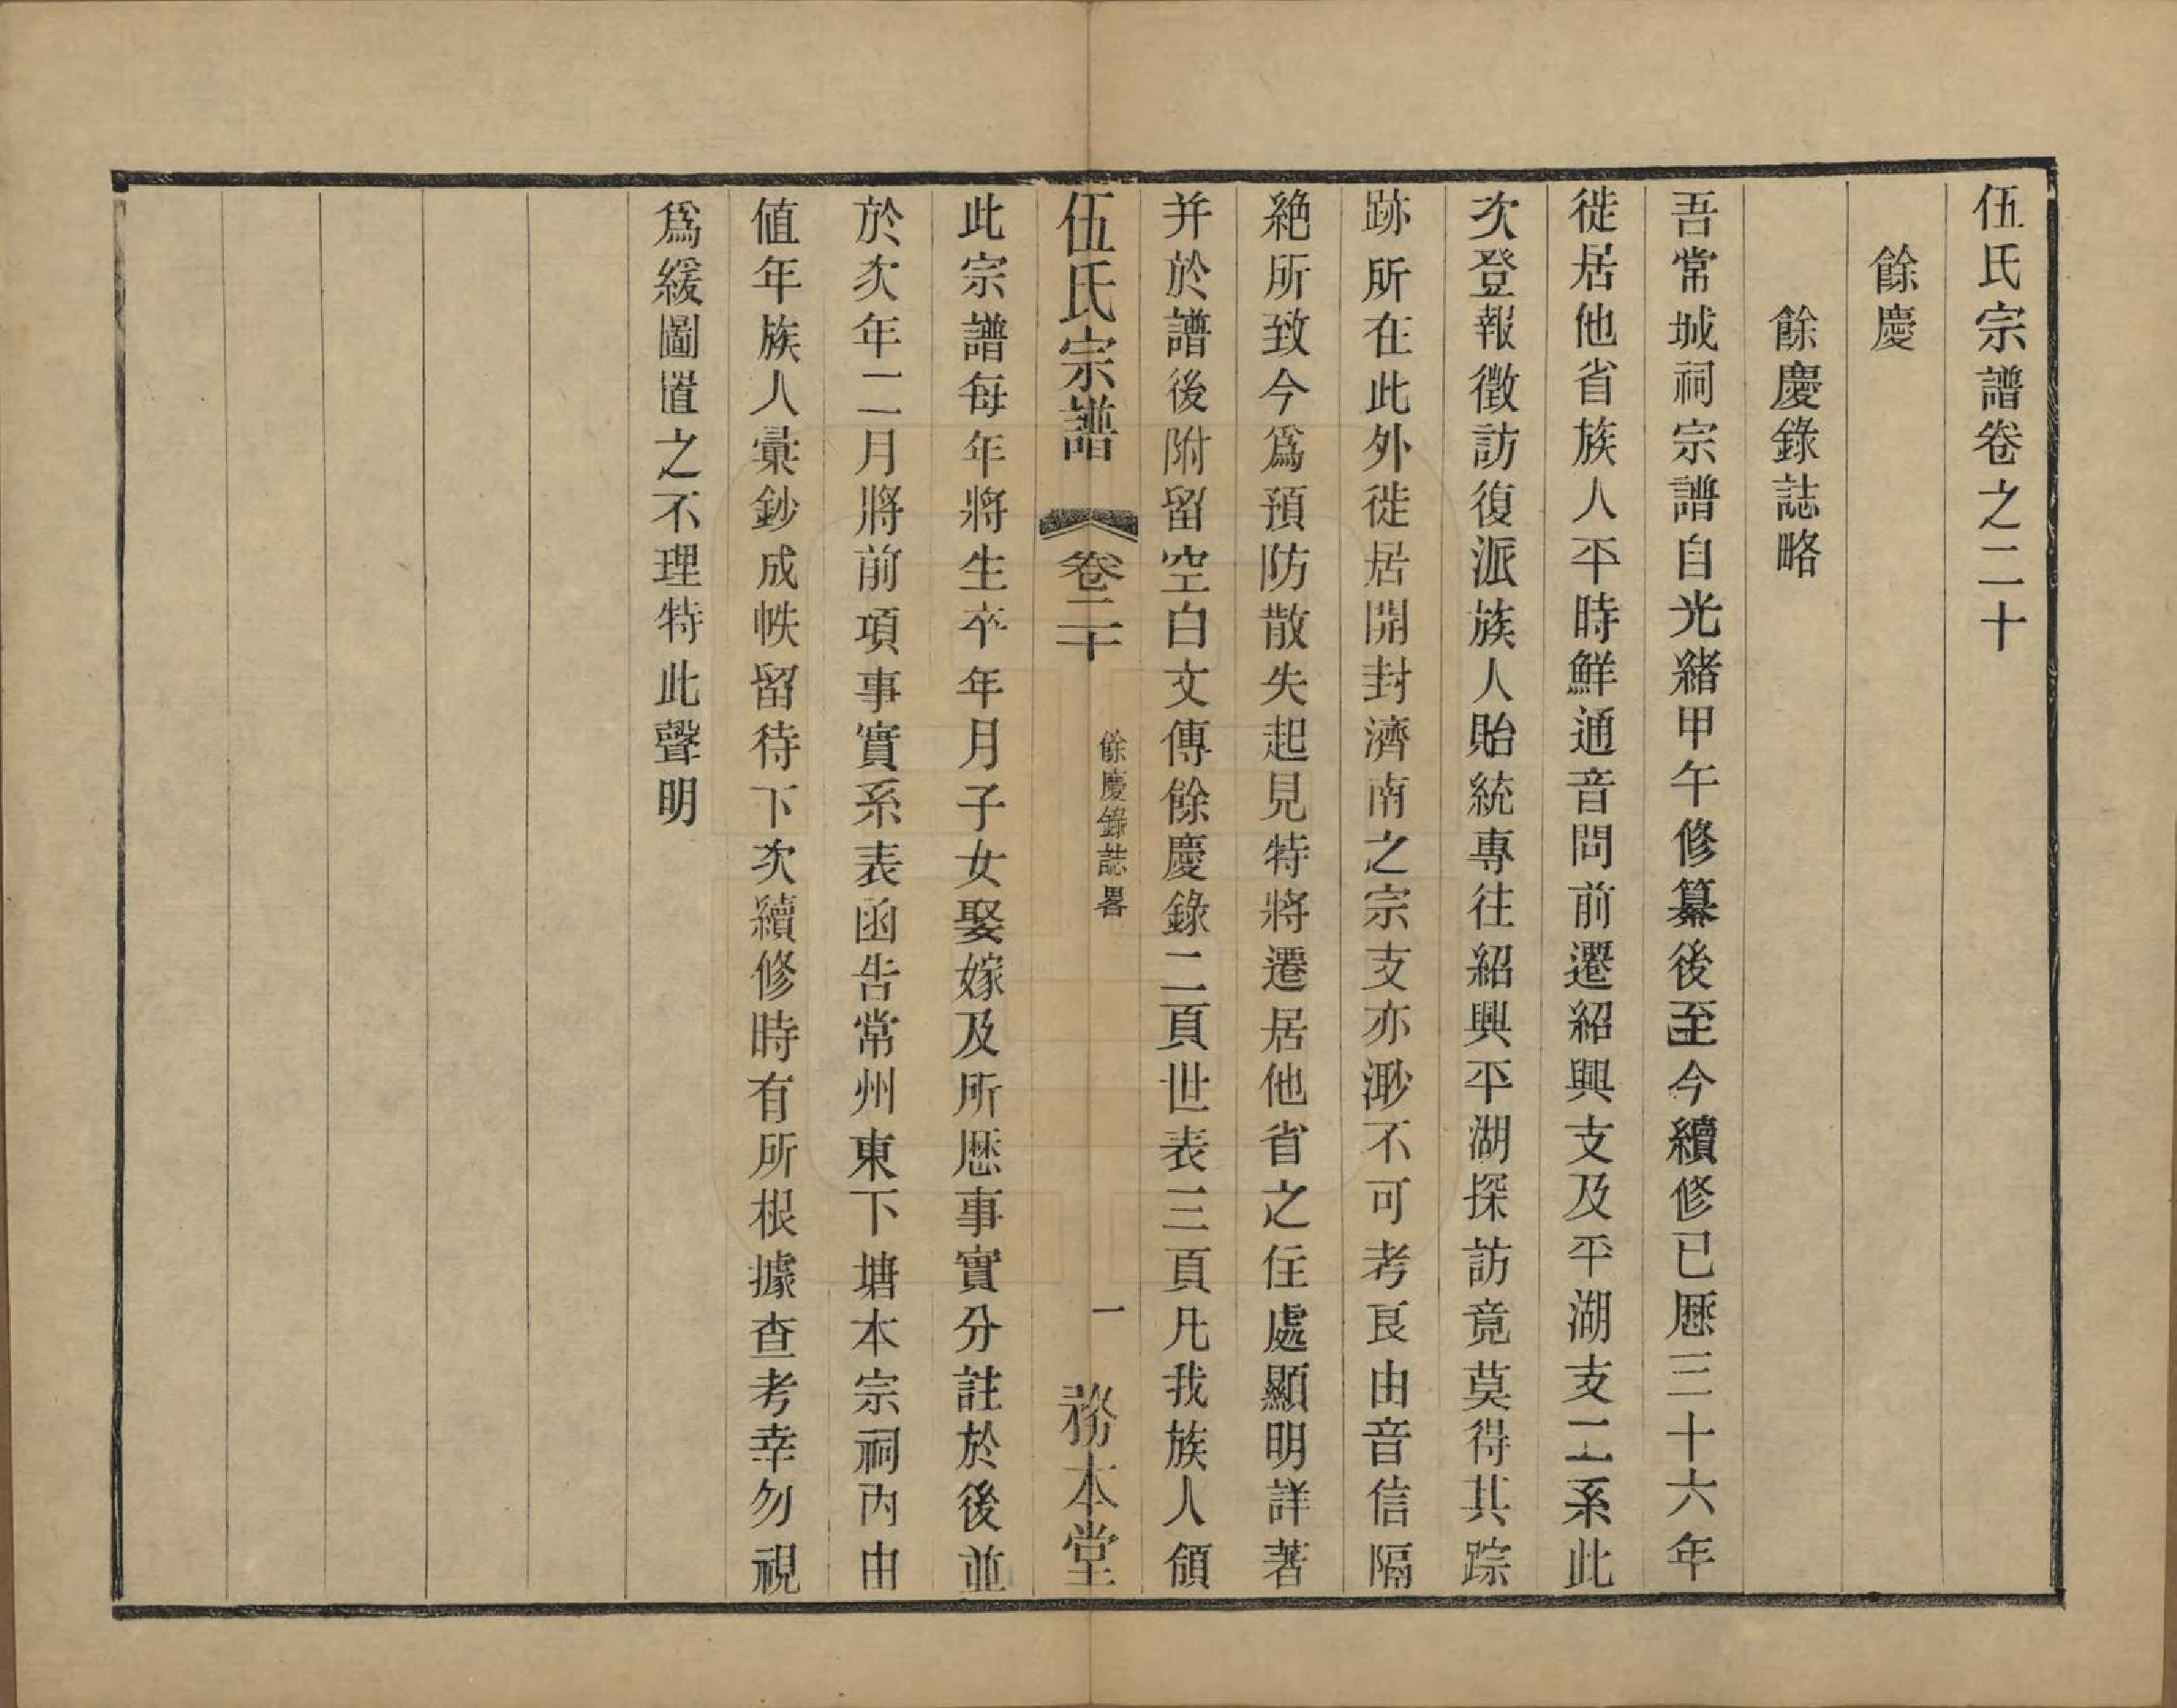 伍氏宗譜卷之二十
餘慶
餘慶錄誌略
吾常城祠宗譜自光緒甲午修纂後至今續修已歷三十六年
徙居他省族人平時鮮通音問前遷紹興支及平湖支二系此
次登報徵訪復派族人貽統專往紹興平湖探訪竟莫得其踪
跡所在此外徙居開封濟南之宗支亦渺不可考良由音信隔
絕所致今爲預防散失起見特將遷居他省之住處顯明詳著
并於譜後附留空白文傳餘慶錄二頁世表三頁凡我族人領
伍氏宗譜
卷二十
餘慶錄誌畧
一
務本堂
此宗譜每年將生卒年月子女娶嫁及所歷事實分註於後並
於次年二月將前項事實系表函告常州東下塘本宗祠內由
值年族人彙鈔成帙留待下次續修時有所根據查考幸勿視
爲緩圖置之不理特此聲明